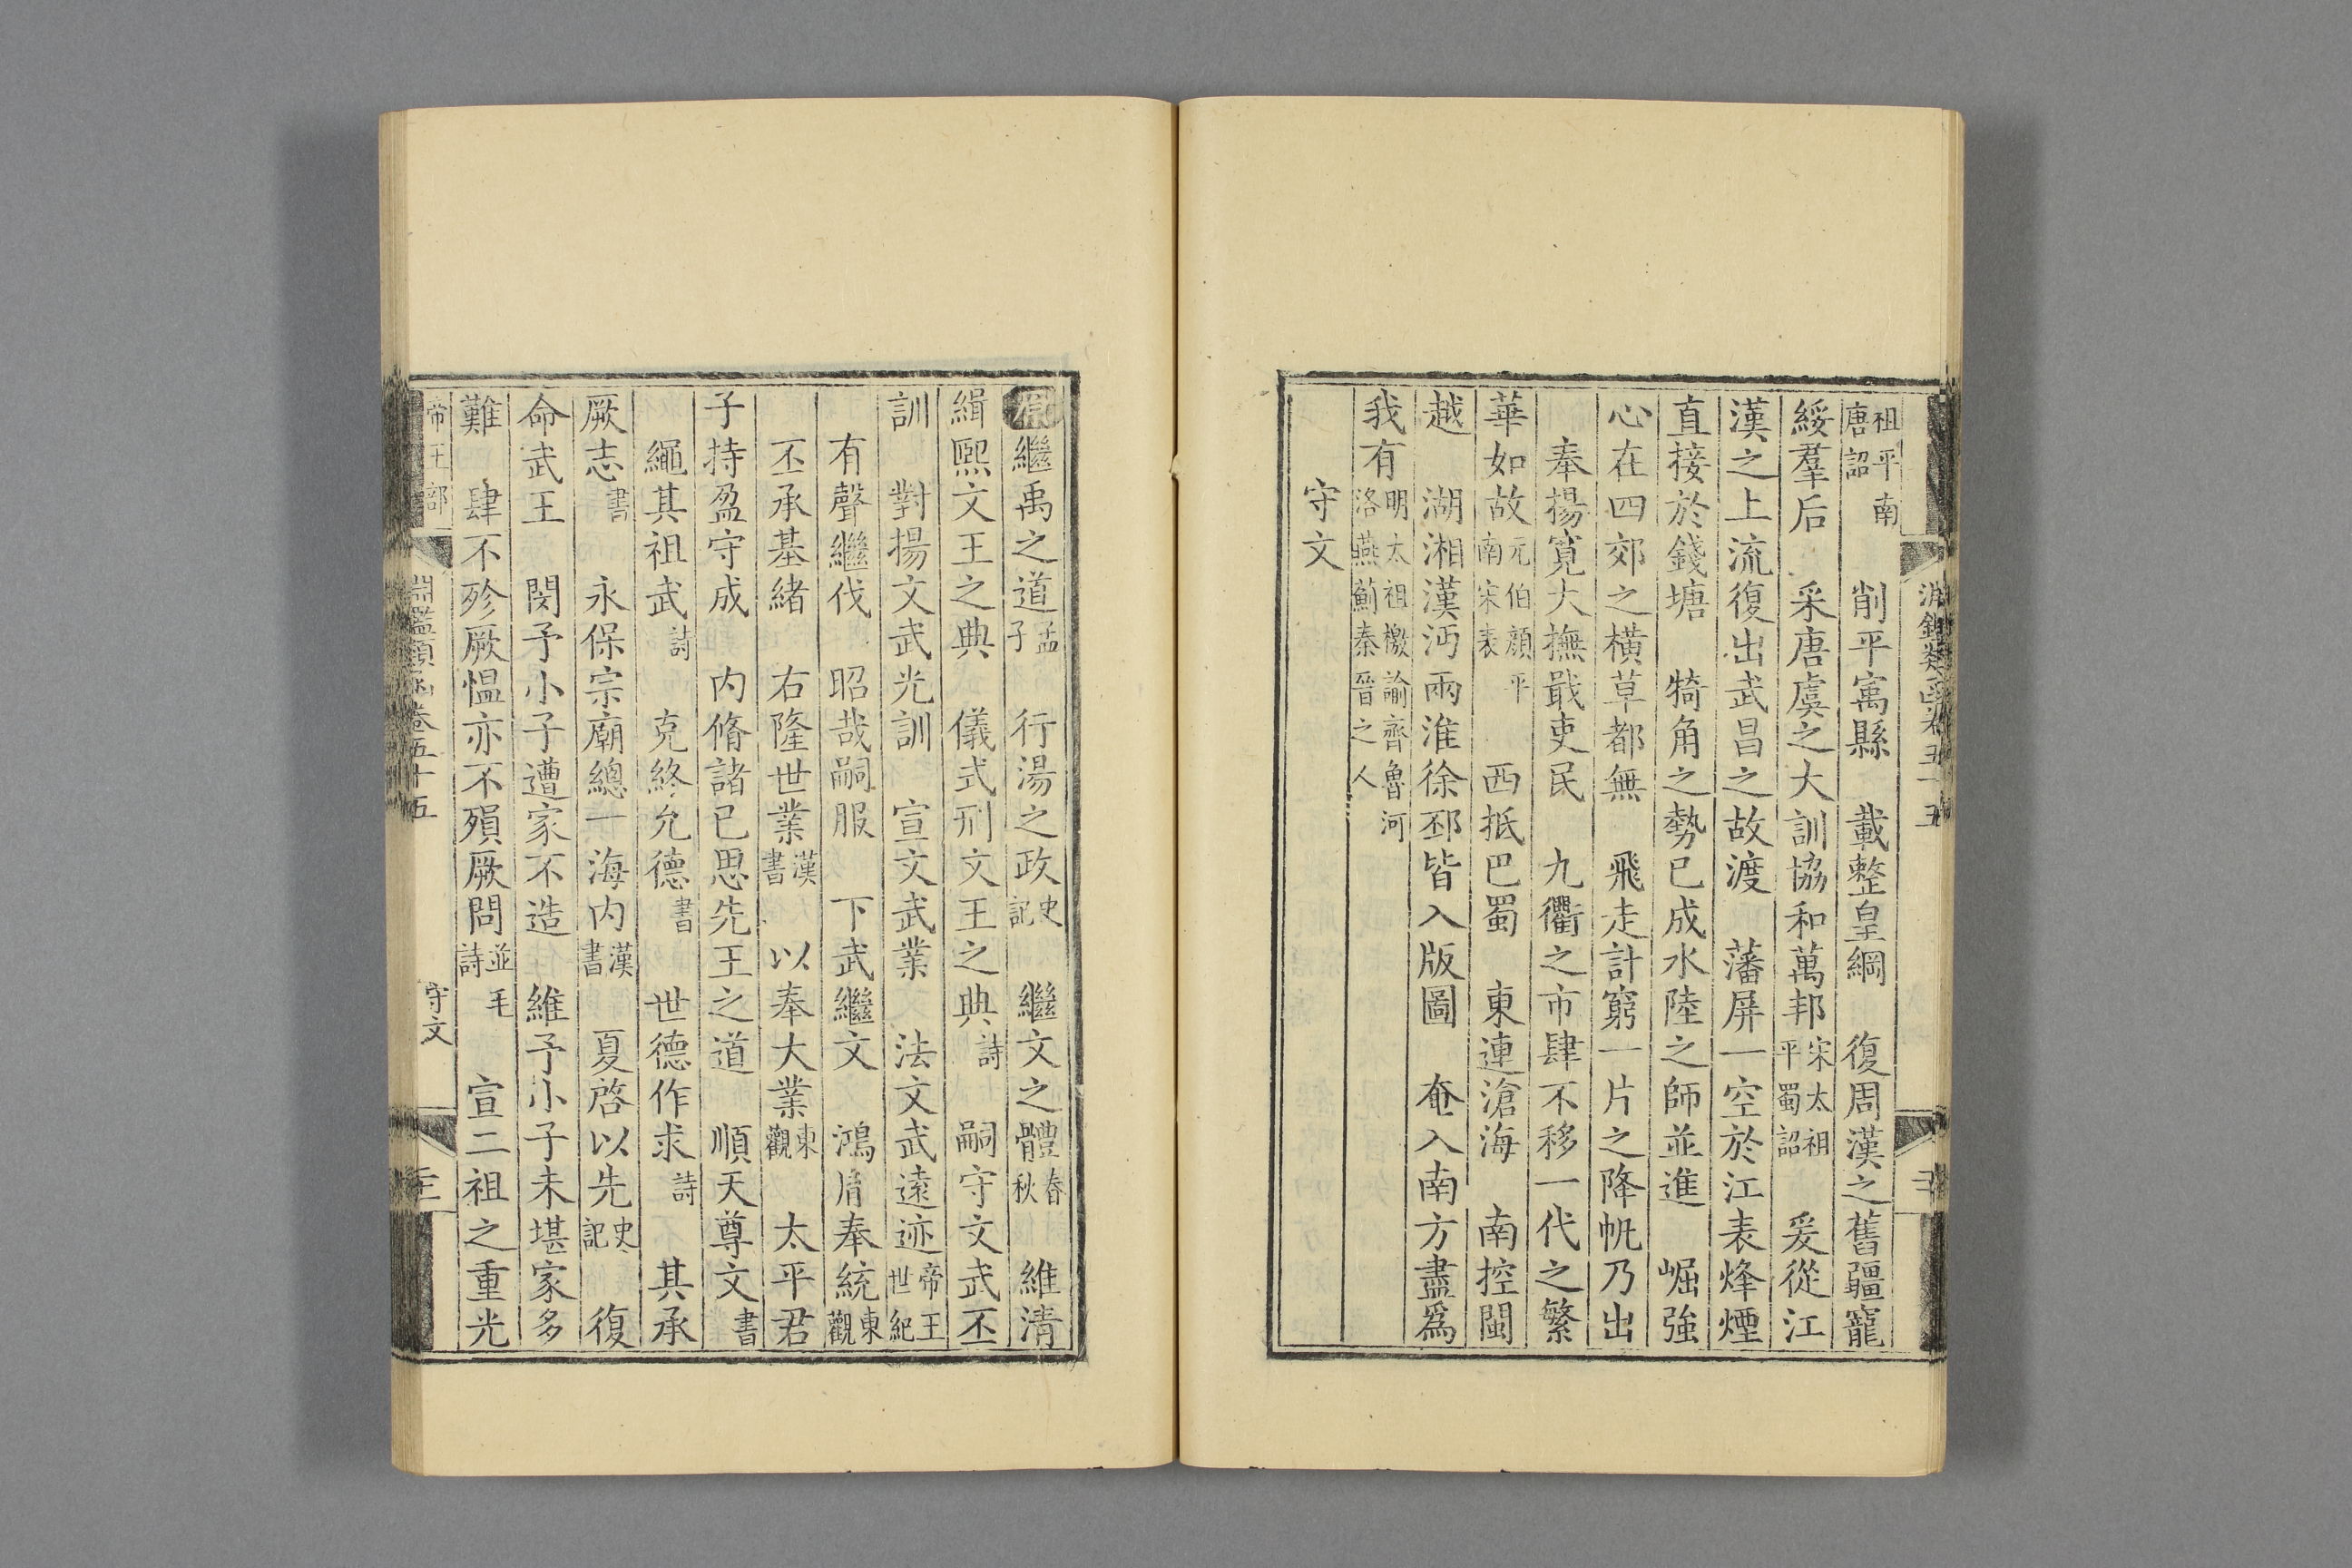 祖平南唐詔 削平寓縣 載整皇綱 復周漢之舊疆寵
綏羣后 采唐虞之大訓協和萬邦宋太祖平蜀詔 爰從江
漢之上流復出武昌之故渡 藩屏一空於江表烽煙
直接於錢塘 犄角之勢已成水陸之師並進 崛強
心在四郊之橫草都無 飛走計窮一片之降帆乃出
奉揚寬大撫戢吏民 九衢之市肆不移一代之繁
華如故元伯顏平南宋表 西抵巴蜀 東連滄海 南控閩
越 湖湘漢沔兩淮徐邳皆入版圖 奄入南方盡爲
我有明太祖檄諭齊魯河洛燕薊秦晉之人
守文
繼禹之道孟子 行湯之政史記 繼文之體春秋 維清
緝熙文王之典 儀式刑文王之典詩 嗣守文武丕
訓 對揚文武光訓 宣文武業 法文武遠迹帝王世紀
有聲繼伐 昭哉嗣服 下武繼文 鴻胄奉統東觀
丕承基緒 右隆世業漢書 以奉大業東觀 太平君
子持盈守成 內脩諸己思先王之道 順天尊文書
繩其祖武詩 克終允德書 世德作求詩 其承
厥志書 永保宗廟總一海內漢書 夏啓以先史記 復
命武王 閔予小子遭家不造 維予小子未堪家多
難 肆不殄厥愠亦不殞厥問並毛詩 宣二祖之重光
帝王部 淵鑑類函卷五十五 守文